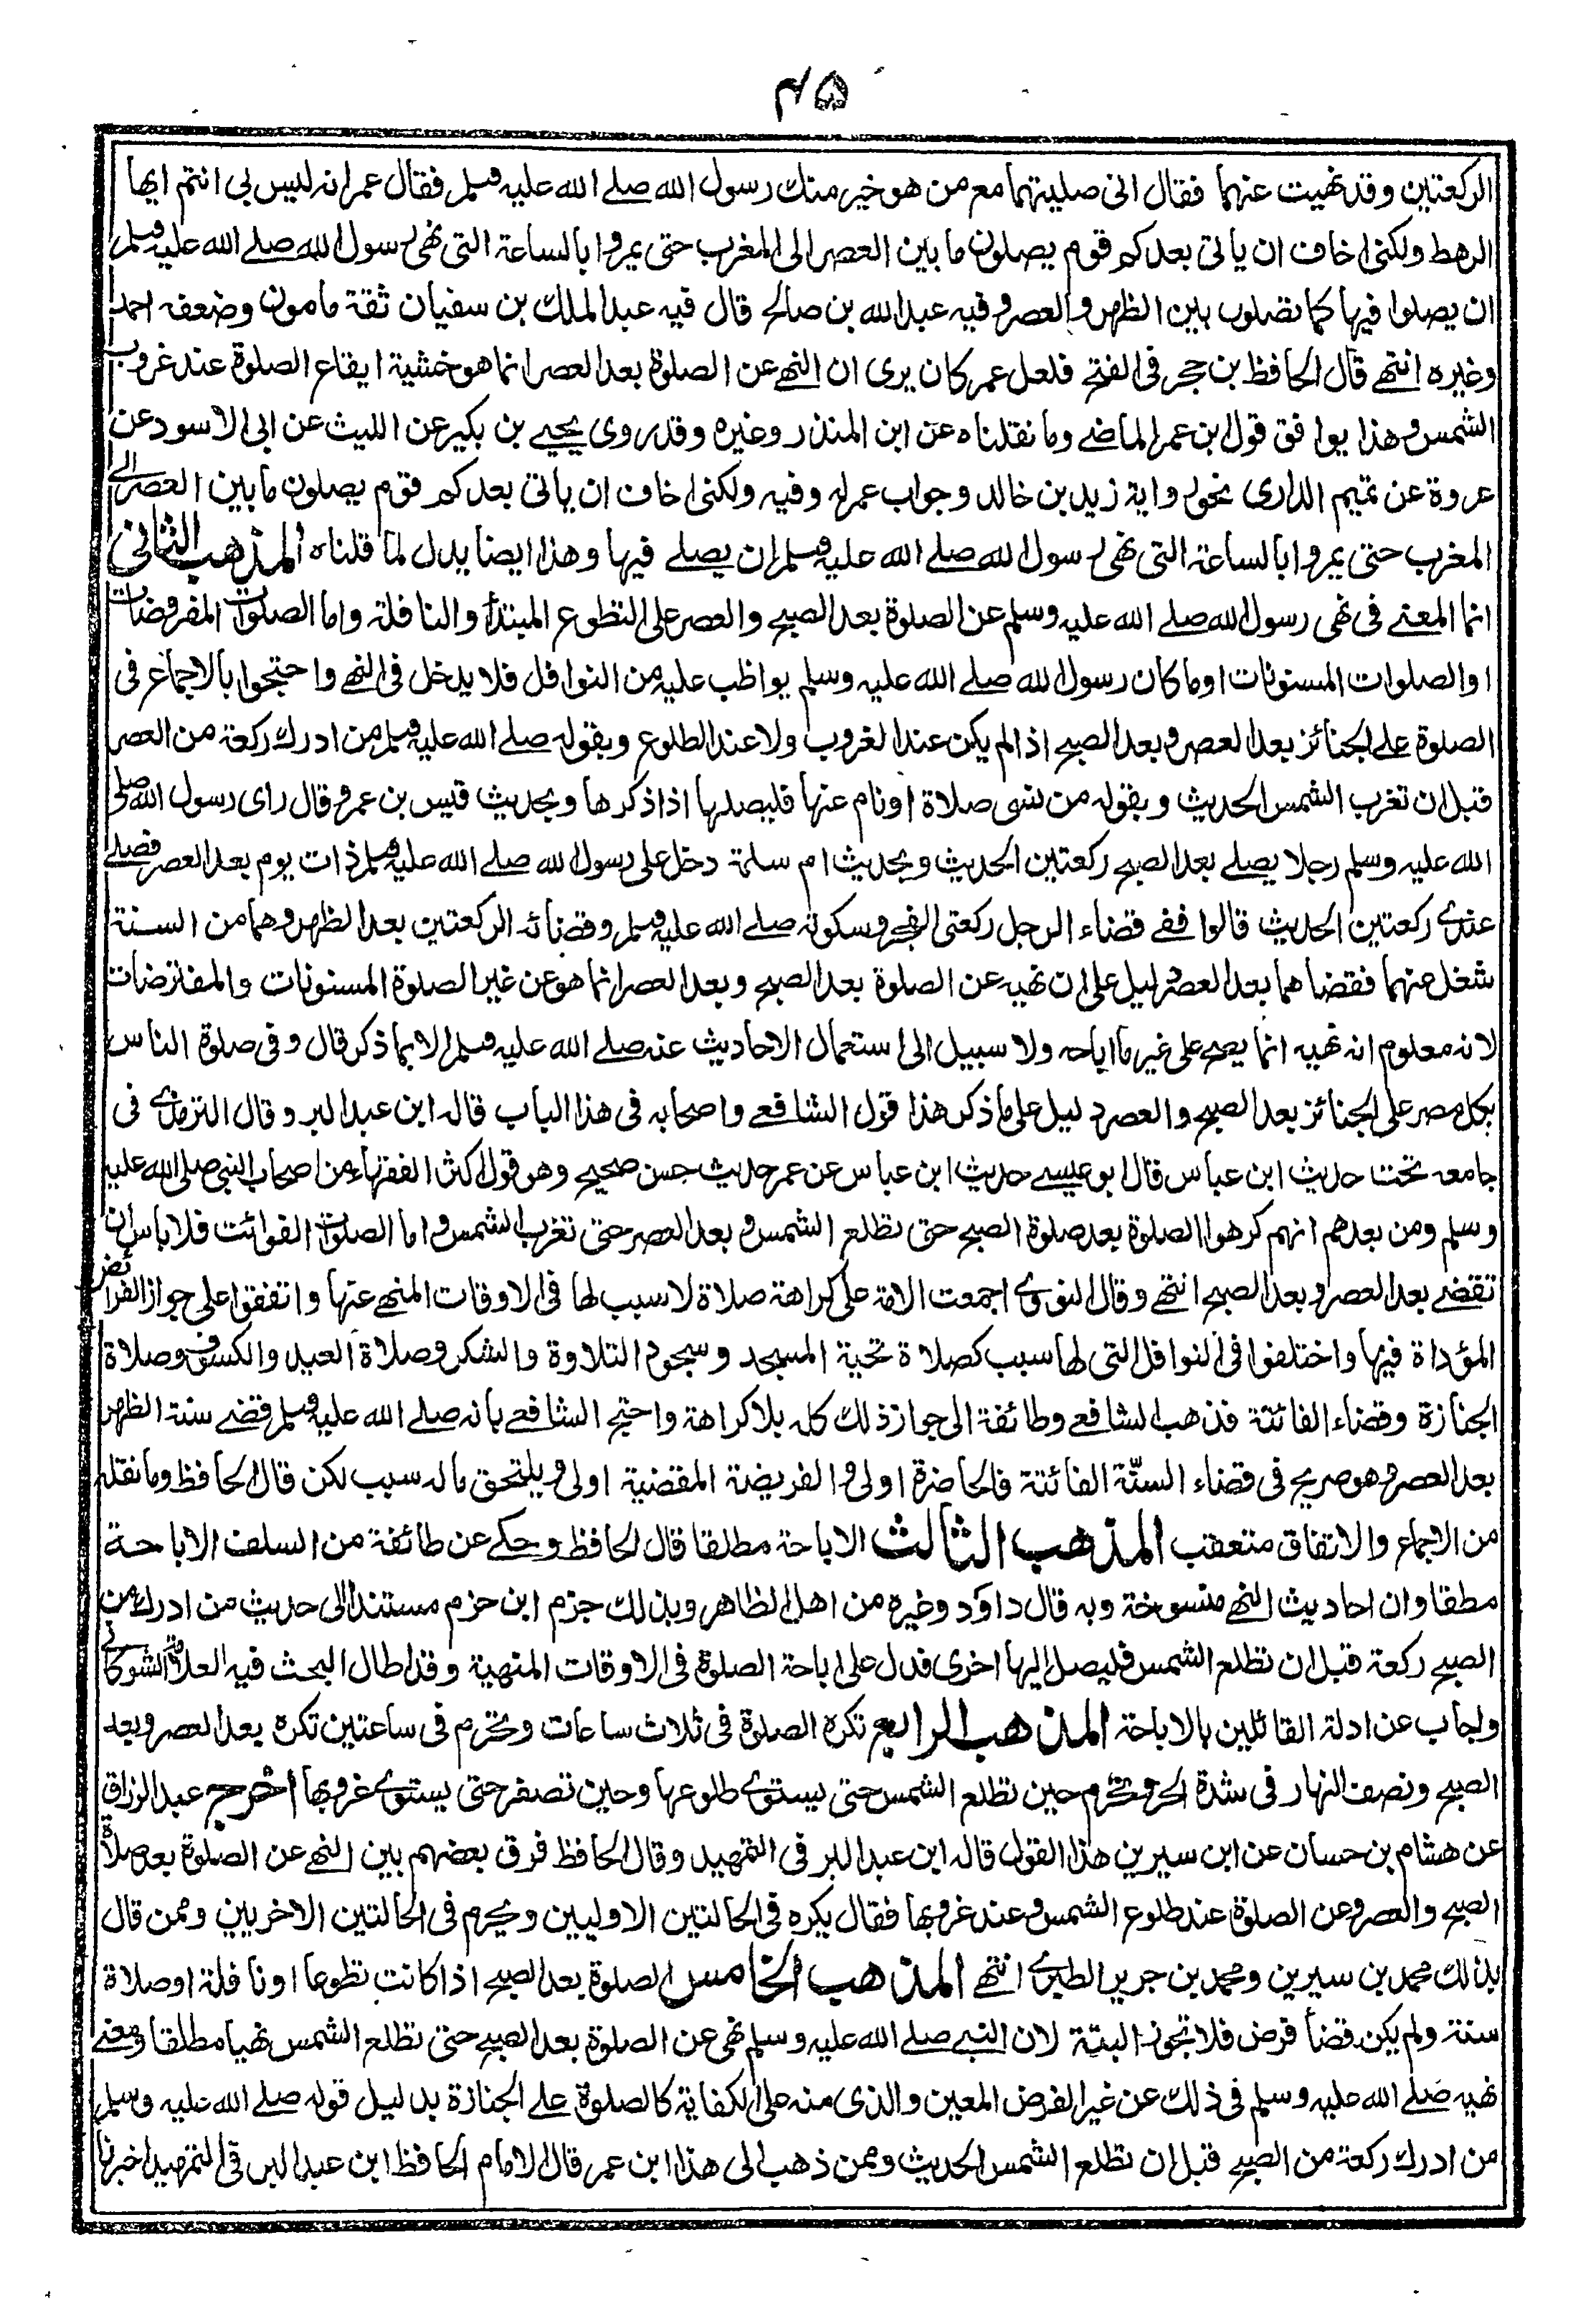 ٤٥
الركعتين وقد نهيت عنهما فقال انى صليتهما مع من هو خير منك رسول الله صلے الله عليه وسلم فقال عمر انه ليس بى انتم ايها
الرهط ولكنى اخاف ان ياتى بعدكم قوم يصلون ما بين العصر الى المغرب حتى يمروا بالساعة التى نهى رسول الله صلے الله عليه وسلم
ان يصلوا فيها كما نصلوب بين الظهر والعصر وفيه عبد الله بن صالح قال فيه عبد الملك بن سفيان ثقة مامون وضعفه احمد
وغيره انتهے قال الحافظ بن حجر فى الفتح فلعل عمر كان يرى ان النهے عن الصلوة بعد العصر انما هو خشية ايقاع الصلوة عند غروب
الشمس وهذا يوافق قول ابن عمر الماضے وما نقلناه عن ابن المنذر وغيره وقد روى يحيے بن بكير عن الليث عن ابى الاسود عن
عروة عن تميم الدارى نحو رواية زيد بن خالد وجواب عمر له وفيه ولكنى اخاف ان ياتى بعدكم قوم يصلون ما بين العصر الے
المغرب حتى يمروا بالساعة التى نهى رسول الله صلے الله عليه وسلم ان يصلے فيها وهذا ايضا يدل لما قلناه المذهب الثانى
انما المعنے فى نهى رسول الله صلے الله عليه وسلم عن الصلوة بعد الصبح والعصر على التطوع المبتدأ والنافلة واما الصلوات المفروضات
او الصلوات المسنونات او ما كان رسول الله صلے الله عليه وسلم يواظب عليه من النوافل فلا يدخل فى النهے واحتجوا بالاجماع فى
الصلوة علے الجنائز بعد العصر وبعد الصبح اذا لم يكن عند الغروب ولا عند الطلوع وبقوله صلے الله عليه وسلم من ادرك ركعة من العصر
قبل ان تغرب الشمس الحديث وبقوله من نسى صلاة او نام عنها فليصلها اذا ذكرها وبحديث قيس بن عمرو قال راى رسول الله صلى
الله عليه وسلم رجلا يصلے بعد الصبح ركعتين الحديث وبحديث ام سلمة دخل على رسول الله صلے الله عليه وسلم ذات يوم بعد العصر فصلے
عندے ركعتين الحديث قالوا ففے قضاء الرجل ركعتى الفجر وسكوته صلے الله عليه وسلم وقضائه الركعتين بعد الظهر وهما من السنة
شغل عنهما فقضاهما بعد العصر دليل على ان نهيه عن الصلوة بعد الصبح وبعد العصر انما هو عن غير الصلوة المسنونات والمفترضات
لانه معلوم انه نهيه انما يصح على غير ما اباحه ولا سبيل الى استعمال الاحاديث عنه صلے الله عليه وسلم الا بما ذكر قال وفى صلوة الناس
بكل مصر على الجنائز بعد الصبح والعصر دليل على ما ذكر هذا قول الشافعے واصحابه فى هذا الباب قاله ابن عبد البر وقال الترمذے فى
جامعه تحت حديث ابن عباس قال ابو عيسے حديث ابن عباس عن عمر حديث حسن صحيح وهو قول اكثر الفقهاء من اصحاب النبى صلى الله عليه
وسلم ومن بعدهم انهم كرهوا الصلوة بعد صلوة الصبح حتى تطلع الشمس وبعد العصر حتى تغرب الشمس واما الصلوات الفوائت فلا باس ان
تقضے بعد العصر وبعد الصبح انتهے وقال النووے اجمعت الامة على كراهة صلاة لا سبب لها فى الاوقات المنهے عنها واتفقوا على جواز الفرائض
المؤداة فيها واختلفوا فى النوافل التى لها سبب كصلاة تحية المسجد وسجود التلاوة والشكر وصلاة العيد والكسوف وصلاة
الجنازة وقضاء الفائتة فذهب الشافعے وطائفة الى جواز ذلك كله بلا كراهة واحتج الشافعے بانه صلے الله عليه وسلم قضے سنة الظهر
بعد العصر وهو صريح فى قضاء السنّة الفائتة فالحاضرة اولى والفريضة المقضية اولى ويلتحق ما له سبب لكن قال الحافظ وما نقله
من الاجماع والاتفاق متعقب المذهب الثالث الاباحة مطلقا قال الحافظ وحكے عن طائفة من السلف الاباحة
مطقا وان احاديث النهے منسوخة وبه قال داؤد وغيره من اهل الظاهر وبذلك جزم ابن حزم مستندا الى حديث من ادرك من
الصبح ركعة قبل ان تطلع الشمس فليصل اليها اخرى فدل على اباحة الصلوة فى الاوقات المنهية وقد اطال البحث فيه العلامة الشوكانے
واجاب عن ادلة القائلين بالاباحة المذهب الرابع تكره الصلوة فى ثلاث ساعات وتحرم فى ساعتين تكره بعد العصر وبعد
الصبح ونصف النهار فى شدة الحر وتحرم حين تطلع الشمس حتى يستوے طلوعها وحين تصفر حتى يستوے غروبها اخرج عبد الرزاق
عن هشام بن حسان عن ابن سيرين هذا القول قاله ابن عبد البر فى التمهيد وقال الحافظ فرق بعضهم بين النهے عن الصلوة بعد صلاة
الصبح والعصر وعن الصلوة عند طلوع الشمس وعند غروبها فقال يكره فى الحالتين الاوليين ويحرم فى الحالتين الاخريين وممن قال
بذلك محمد بن سيرين ومحمد بن جرير الطبرے انتهے المذهب الخامس الصلوة بعد الصبح اذا كانت تطوعا او نافلة او صلاة
سنة ولم يكن قضأ فرض فلا تجوز البتة لان النبے صلے الله عليه وسلم نهى عن الصلوة بعد الصبح حتى تطلع الشمس نهيا مطلقا ومعنے
نهيه صلے الله عليه وسلم فى ذلك عن غير الفرض المعين والذى منه على الكفاية كالصلوة علے الجنازة بدليل قوله صلے الله عليه وسلم
من ادرك ركعة من الصبح قبل ان تطلع الشمس الحديث وممن ذهب الى هذا ابن عمر قال الامام الحافظ ابن عبد البر فى التمهيد اخبرنا